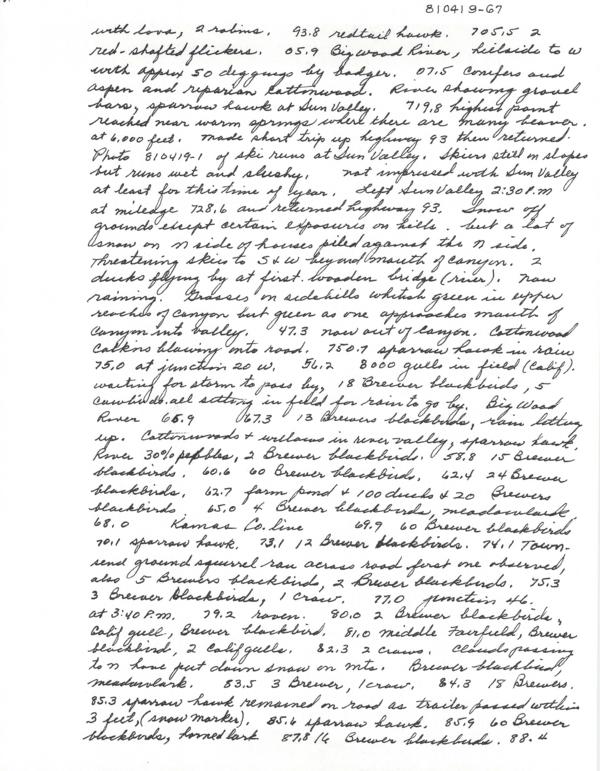 810419-67
with lava, 2 robins. 93.8 redtail hawk. 705.5 2
red-shafted flickers. 05.9 Big Wood River, hillside to W
with approx 50 deg guys by badger. 07.5 Conifers and
aspen and riparian Cottonwood. River showing gravel
bars, sparrow hawk at Sun Valley. 719.8 highest point
reached near warm springs where there are many beaver.
at 6,000 feet. Made short trip up highway 93 then returned.
Photo 810419-1 of ski runs at Sun Valley. Skiers still on slopes
but runs wet and slushy. not impressed with Sun Valley
at least for this time of year. Left Sun Valley 2:30 P.M
at mileage 728.6 and returned highway 93. Snow off
grounds except certain exposures on hills. but a lot of
snow on N side of houses piled against the N side.
Threatening skies to S & W beyond mouth of canyon. 2
ducks flying by at first wooden bridge (river). now
raining. Grasses on sidehills whitish green in upper
reaches of canyon but green as one approaches mouth of
canyon into valley. 47.3 now out of canyon. Cottonwood
catkins blowing onto road. 750.7 sparrow hawk in rain
75.0 at junction 20 W. 56.2 8000 gulls in field (Calif).
waiting for storm to pass by, 18 Brewer blackbirds, 5
cowbirds all sitting in field for rain to go by. Big Wood
River 65.9 67.3 13 Brewers blackbirds, rain letting
up. Cottonwoods + willows in river valley, sparrow hawk.
River 30% pebbles, 2 Brewer blackbirds. 58.8 15 Brewer
blackbirds. 60.6 60 Brewer blackbirds. 62.4 24 Brewer
blackbirds. 62.7 farm pond & 100 ducks & 20 Brewers
blackbirds. 65.0 4 Brewer blackbirds, meadowlark
68.0 Kamas Co. line 69.9 60 Brewer blackbirds
70.1 sparrow hawk. 73.1 12 Brewer blackbirds. 74.1 Town-
send ground squirrel ran across road first one observed,
also 5 Brewers blackbirds, 2 Brewer blackbirds. 75.3
3 Brewer blackbirds, 1 crow. 77.0 junction 46.
at 3:40 P.M. 79.2 raven. 80.0 2 Brewer blackbirds,
Calif gull, Brewer blackbird. 81.0 middle Fairfield, Brewer
blackbird, 2 Calif gulls. 82.3 2 crows. Clouds passing
to N have put down snow on mts. Brewer blackbird,
meadowlark. 83.5 3 Brewer, 1 crow. 84.3 18 Brewers.
85.3 sparrow hawk remained on road as trailer passed within
3 feet, (snow marker). 85.6 sparrow hawk. 85.9 60 Brewer
blackbirds, horned lark 87.8 16 Brewer blackbirds. 88.4